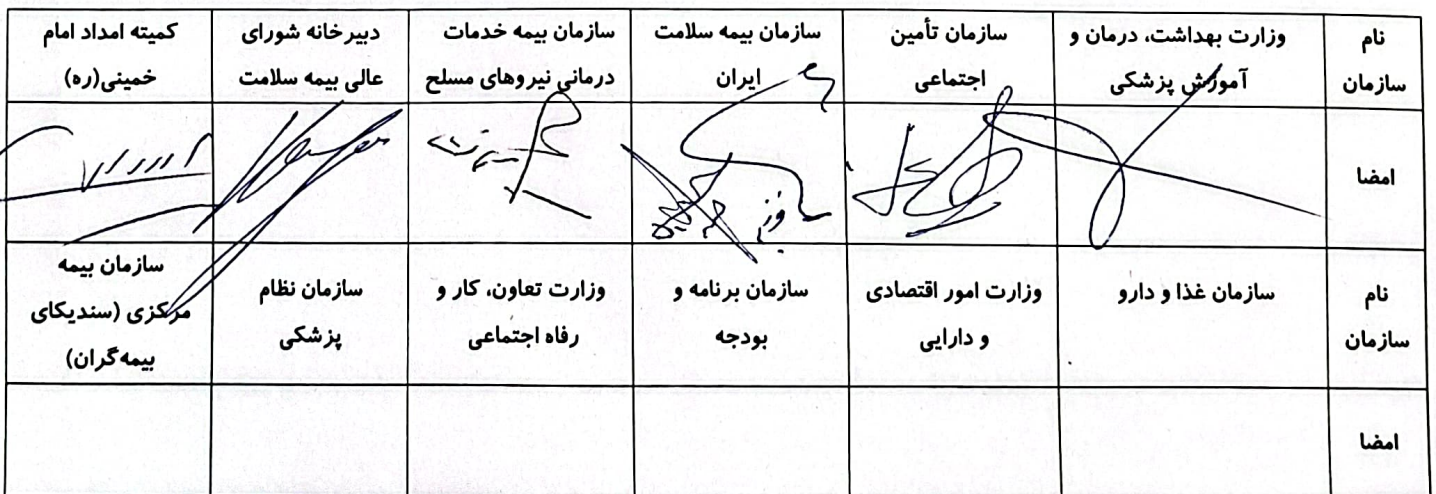 نام سازمان
وزارت بهداشت، درمان و آموزش پزشکی
سازمان تأمین اجتماعی
سازمان بیمه سلامت ایران
سازمان بیمه خدمات درمانی نیروهای مسلح
دبیرخانه شورای عالی بیمه سلامت
کمیته امداد امام خمینی(ره)
امضا
نام سازمان
سازمان غذا و دارو
وزارت امور اقتصادی و دارایی
سازمان برنامه و بودجه
وزارت تعاون، کار و رفاه اجتماعی
سازمان نظام پزشکی
سازمان بیمه مرکزی (سندیکای بیمه‌گران)
امضا